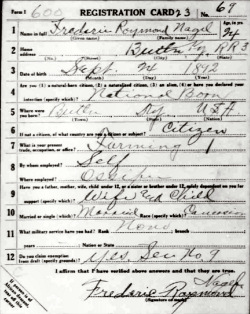 Form 1 REGISTRATION CARD 23 No. 69
600
1 Name in full Frederic Raymond Nagel Age, in yrs. 24
(Given name) (Family name)
2 Home address Butler Ky RR3
(No.) (Street) (City) (State)
3 Date of birth Sept. 24 1892
(Month) (Day) (Year)
4 Are you (1) a natural-born citizen, (2) a naturalized citizen, (3) an alien, (4) or have you declared your intention (specify which)? Natural Born
5 Where were you born? Butler Ky. USA
(Town) (State) (Nation)
6 If not a citizen, of what country are you a citizen or subject? Citizen
7 What is your present trade, occupation, or office? Farming 1
8 By whom employed? Self
Where employed?
9 Have you a father, mother, wife, child under 12, or a sister or brother under 12, solely dependent on you for support (specify which)? Wife and Child
10 Married or single (which)? Married Race (specify which)? Caucasian
11 What military service have you had? Rank None branch
years Nation or State
12 Do you claim exemption from draft (specify grounds)? Yes. See No. 9
I affirm that I have verified above answers and that they are true.
Frederic Raymond Nagel
(Signature or mark)